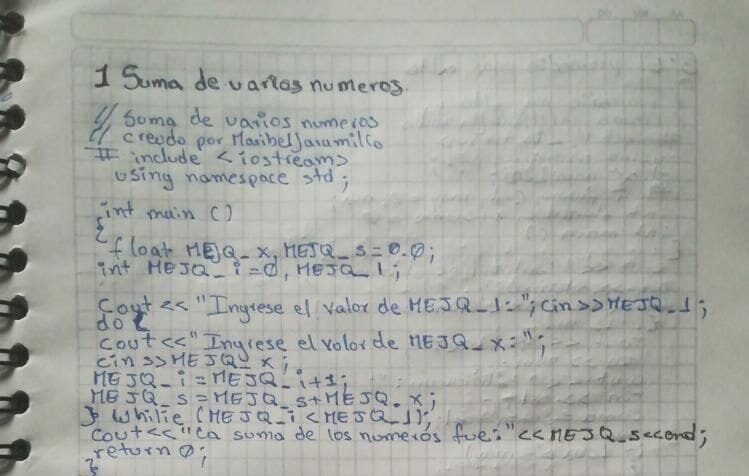 1 Suma de varios numeros.
// Suma de varios numeros
// creado por Maribel Jaramillo
# include <iostream>
using namespace std;
int main ()
{
float MEJQ_x, MEJQ_s=0.0;
int MEJQ_i=0, MEJQ_1;
Cout << "Ingrese el valor de MEJQ_1="; cin>>MEJQ_1;
do {
cout<<"Ingrese el valor de MEJQ_x=";
cin>>MEJQ_x;
MEJQ_i=MEJQ_i+1;
MEJQ_s=MEJQ_s+MEJQ_x;
} whilie (MEJQ_i<MEJQ_1);
cout<<"La suma de los numeros fue:"<<MEJQ_s<<end;
return 0;
}